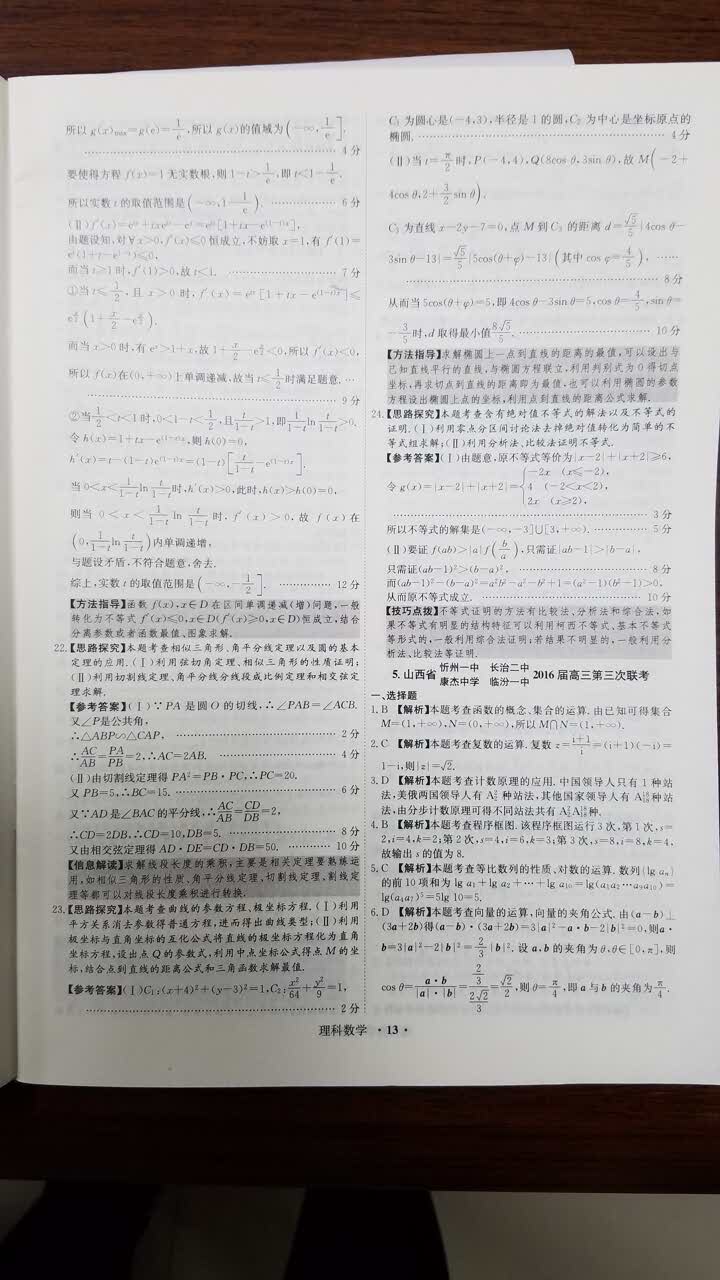 所以 g(x)max=g(e)=1/e,所以 g(x)的值域为(-∞,1/e].
4 分
要使得方程 f(x)=1 无实数根,则 1-t>1/e,即 t<1-1/e.
所以实数 t 的取值范围是(-∞,1-1/e). 6 分
由题设知,对∀x>0,f′(x)≤0 恒成立,不妨取 x=1,有 f′(1)=
而当 t≥1 时,f′(1)>0,故 t<1. 7 分
①当 t≤1/2,且 x>0 时,
而当 x>0 时,有 eˣ>1+x,故
所以 f(x)在(0,+∞)上单调递减,故当 t≤1/2 时满足题意.
9 分
②当 1/2<t<1 时,
令 h(x)=1+tx-e^((1-t)x),则 h(0)=0,
h′(x)=t-(1-t)e^((1-t)x)=(1-t)[t/(1-t)-e^((1-t)x)].
当 0<x<1/(1-t) ln t/(1-t) 时,h′(x)>0,此时,h(x)>h(0)=0,
则当 0<x<1/(1-t) ln t/(1-t) 时,f′(x)>0,故 f(x)在
(0,1/(1-t) ln t/(1-t))内单调递增,
与题设矛盾,不符合题意,舍去.
综上,实数 t 的取值范围是(-∞,1/2]. 12 分
【方法指导】函数 f(x),x∈D 在区间单调递减(增)问题,一般
转化为不等式 f′(x)≤0,x∈D(f′(x)≥0,x∈D)恒成立,结合
分离参数或者函数最值、图象求解.
22.【思路探究】本题考查相似三角形、角平分线定理以及圆的基本
定理的应用.(Ⅰ)利用弦切角定理、相似三角形的性质证明;
(Ⅱ)利用切割线定理、角平分线分线段成比例定理和相交弦定
理求解.
【参考答案】(Ⅰ)∵PA 是圆 O 的切线,∴∠PAB=∠ACB.
又∠P 是公共角,
∴△ABP∽△CAP, 2 分
∴AC/AB=PA/PB=2,∴AC=2AB. 4 分
(Ⅱ)由切割线定理得 PA²=PB·PC,∴PC=20.
又 PB=5,∴BC=15. 6 分
又∵AD 是∠BAC 的平分线,∴AC/AB=CD/DB=2,
∴CD=2DB,∴CD=10,DB=5. 8 分
又由相交弦定理得 AD·DE=CD·DB=50. 10 分
【信息解读】求解线段长度的乘积,主要是相关定理要熟练运
用,如相似三角形的性质、角平分线定理、切割线定理、割线定
理等都可以对线段长度乘积进行转换.
23.【思路探究】本题考查曲线的参数方程、极坐标方程.(Ⅰ)利用
平方关系消去参数得普通方程,进而得出曲线类型;(Ⅱ)利用
极坐标与直角坐标的互化公式将直线的极坐标方程化为直角
坐标方程,设出点 Q 的参数式,利用中点坐标公式得点 M 的坐
标,结合点到直线的距离公式和三角函数求解最值.
【参考答案】(Ⅰ)C₁:(x+4)²+(y-3)²=1,C₂:x²/64+y²/9=1,
2 分
C₁ 为圆心是(-4,3),半径是 1 的圆,C₂ 为中心是坐标原点的
椭圆. 4 分
(Ⅱ)当 t=π/2 时,P(-4,4),Q(8cos θ,3sin θ),故 M(-2+
4cos θ,2+3/2 sin θ).
C₃ 为直线 x-2y-7=0,点 M 到 C₃ 的距离 d=√5/5|4cos θ-
3sin θ-13|=√5/5|5cos(θ+φ)-13|(其中 cos φ=4/5),
8 分
从而当 5cos(θ+φ)=5,即 4cos θ-3sin θ=5,cos θ=4/5,sin θ=
-3/5 时,d 取得最小值 8√5/5. 10 分
【方法指导】求解椭圆上一点到直线的距离的最值,可以设出与
已知直线平行的直线,与椭圆方程联立,利用判别式为 0 得切点
坐标,再求切点到直线的距离即为最值,也可以利用椭圆的参数
方程设出椭圆上点的坐标,利用点到直线的距离公式求解.
24.【思路探究】本题考查含有绝对值不等式的解法以及不等式的
证明.(Ⅰ)利用零点分区间讨论法去掉绝对值转化为简单的不
等式组求解;(Ⅱ)利用分析法、比较法证明不等式.
【参考答案】(Ⅰ)由题意,原不等式等价为|x-2|+|x+2|≥6,
令 g(x)=|x-2|+|x+2|={-2x (x≤-2),
4 (-2<x<2),
2x (x≥2),
3 分
所以不等式的解集是(-∞,-3]∪[3,+∞). 5 分
(Ⅱ)要证 f(ab)>|a|f(b/a),只需证|ab-1|>|b-a|,
只需证(ab-1)²>(b-a)², 8 分
而(ab-1)²-(b-a)²=a²b²-a²-b²+1=(a²-1)(b²-1)>0,
从而原不等式成立. 10 分
【技巧点拨】不等式证明的方法有比较法、分析法和综合法,如
果不等式有明显的结构特征可以利用柯西不等式、基本不等式
等形式的,一般利用综合法证明;若结果不明显的,一般利用分
析法、比较法等证明.
5.山西省 忻州一中 长治二中 康杰中学 临汾一中 2016 届高三第三次联考
一、选择题
1. B 【解析】本题考查函数的概念、集合的运算.由已知可得集合
M=(1,+∞),N=(0,+∞),所以 M∩N=(1,+∞).
2. C 【解析】本题考查复数的运算.复数 z=(i+1)/i=(i+1)(-i)=
1-i,则|z|=√2.
3. D 【解析】本题考查计数原理的应用.中国领导人只有 1 种站
法,美俄两国领导人有 A₂² 种站法,其他国家领导人有 A₁₈¹⁸ 种站
法,由分步计数原理可得不同站法共有 A₂²A₁₈¹⁸ 种.
4. B 【解析】本题考查程序框图.该程序框图运行 3 次,第 1 次,s=
2,i=4,k=2;第 2 次,s=4,i=6,k=3;第 3 次,s=8,i=8,k=4,
故输出 s 的值为 8.
5. C 【解析】本题考查等比数列的性质、对数的运算.数列{lg aₙ}
的前 10 项和为 lg a₁+lg a₂+…+lg a₁₀=lg(a₁a₂…a₉a₁₀)=
lg(a₄a₇)⁵=5lg 10=5.
6. D 【解析】本题考查向量的运算,向量的夹角公式.由(a-b)⊥
(3a+2b)得(a-b)·(3a+2b)=3|a|²-a·b-2|b|²=0,则 a·
b=3|a|²-2|b|²=2/3|b|².设 a,b 的夹角为 θ,θ∈[0,π],则
cos θ=a·b/(|a|·|b|)=(2/3)/(2√2/3)=√2/2,则 θ=π/4,即 a 与 b 的夹角为 π/4.
理科数学 ·13·